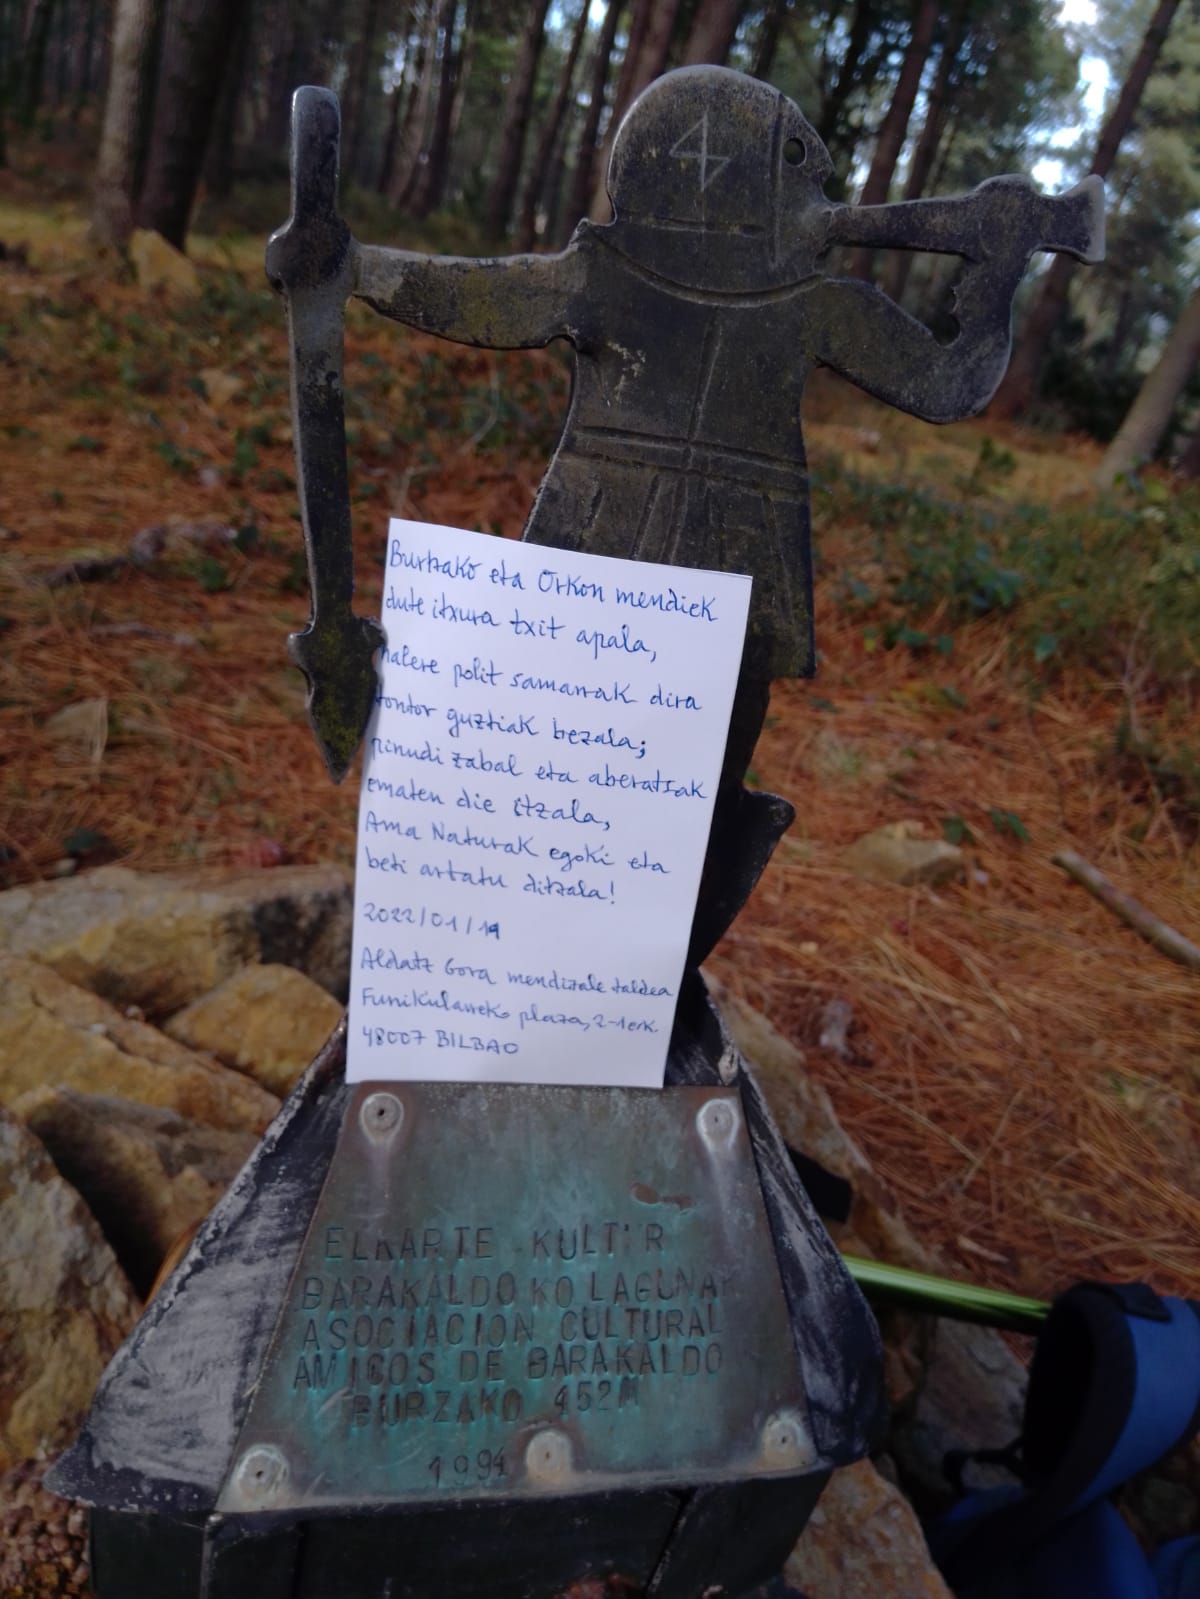 Burtzako eta Orkon mendiek
dute itxura txit apala,
halere polit samarrak dira
tontor guztiak bezala;
pinudi zabal eta aberatsak
ematen die itzala,
Ama Naturak egoki eta
beti artatu ditzala!
2022/01/19
Aldatz Gora mendizale taldea
Funikularreko plaza, 2-1esk.
48007 BILBAO
ELKARTE KULTUR
BARAKALDOKO LAGUNAK
ASOCIACION CULTURAL
AMIGOS DE BARAKALDO
BURZAKO 452M
1994